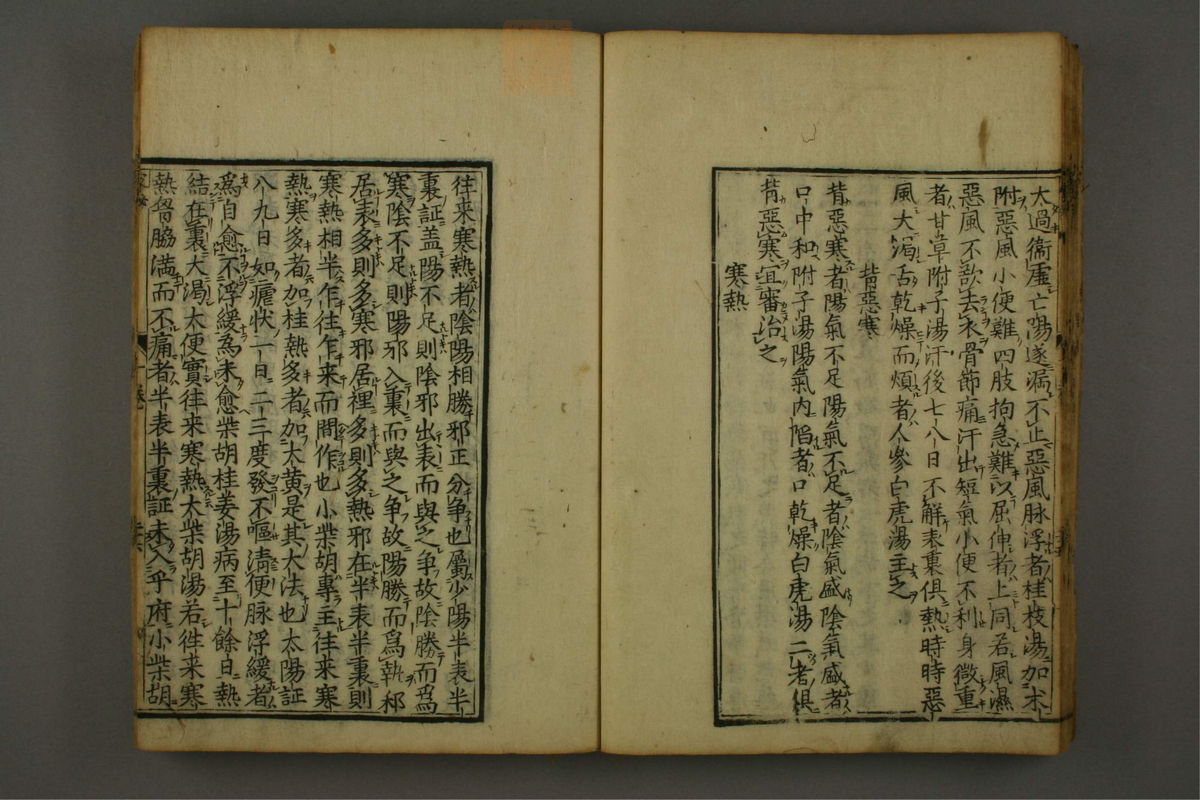 大過衞虚亡陽遂漏不止惡風脉浮者桂枝湯加朮
附惡風小便難四肢拘急難以屈伸者上同若風濕
惡風不欲去衣骨節痛汗出短氣小便不利身微重
者甘草附子湯汗後七八日不解表裏俱熱時時惡
風大渴舌乾燥而煩者人參白虎湯主之
背惡寒
背惡寒者陽氣不足陽氣不足者陰氣盛陰氣盛者
口中和附子湯陽氣内陷者口乾燥白虎湯二者俱
背惡寒宜審治之
寒熱
往来寒熱者陰陽相勝邪正分争也屬少陽半表半
裏証盖陽不足則陰邪出表而與之争故陰勝而爲
寒陰不足則陽邪入裏而與之争故陽勝而爲熱邪
居表多則多寒邪居裡多則多熱邪在半表半裏則
寒熱相半乍往乍来而間作也小柴胡專主往来寒
熱寒多者加桂熱多者加大黄是其大法也太陽証
八九日如瘧状一日二三度發不嘔清便脉浮緩者
爲自愈不浮緩為未愈柴胡桂姜湯病至十餘日熱
結在裏大渴大便實往来寒熱大柴胡湯若徃来寒
熱胷脇満而不痛者半表半裏証未入乎府小柴胡